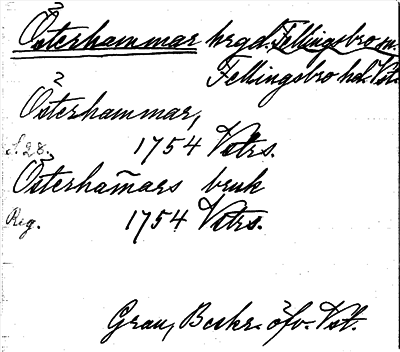 Österhammar hrgd. Fellingsbro sn.
Fellingsbro hd. Vst.
Österhammar,
s. 28. 1754 Vstrs.
Österham̄ars bruk
Reg. 1754 Vstrs.
Grau, Beskr. öfv. Vst.